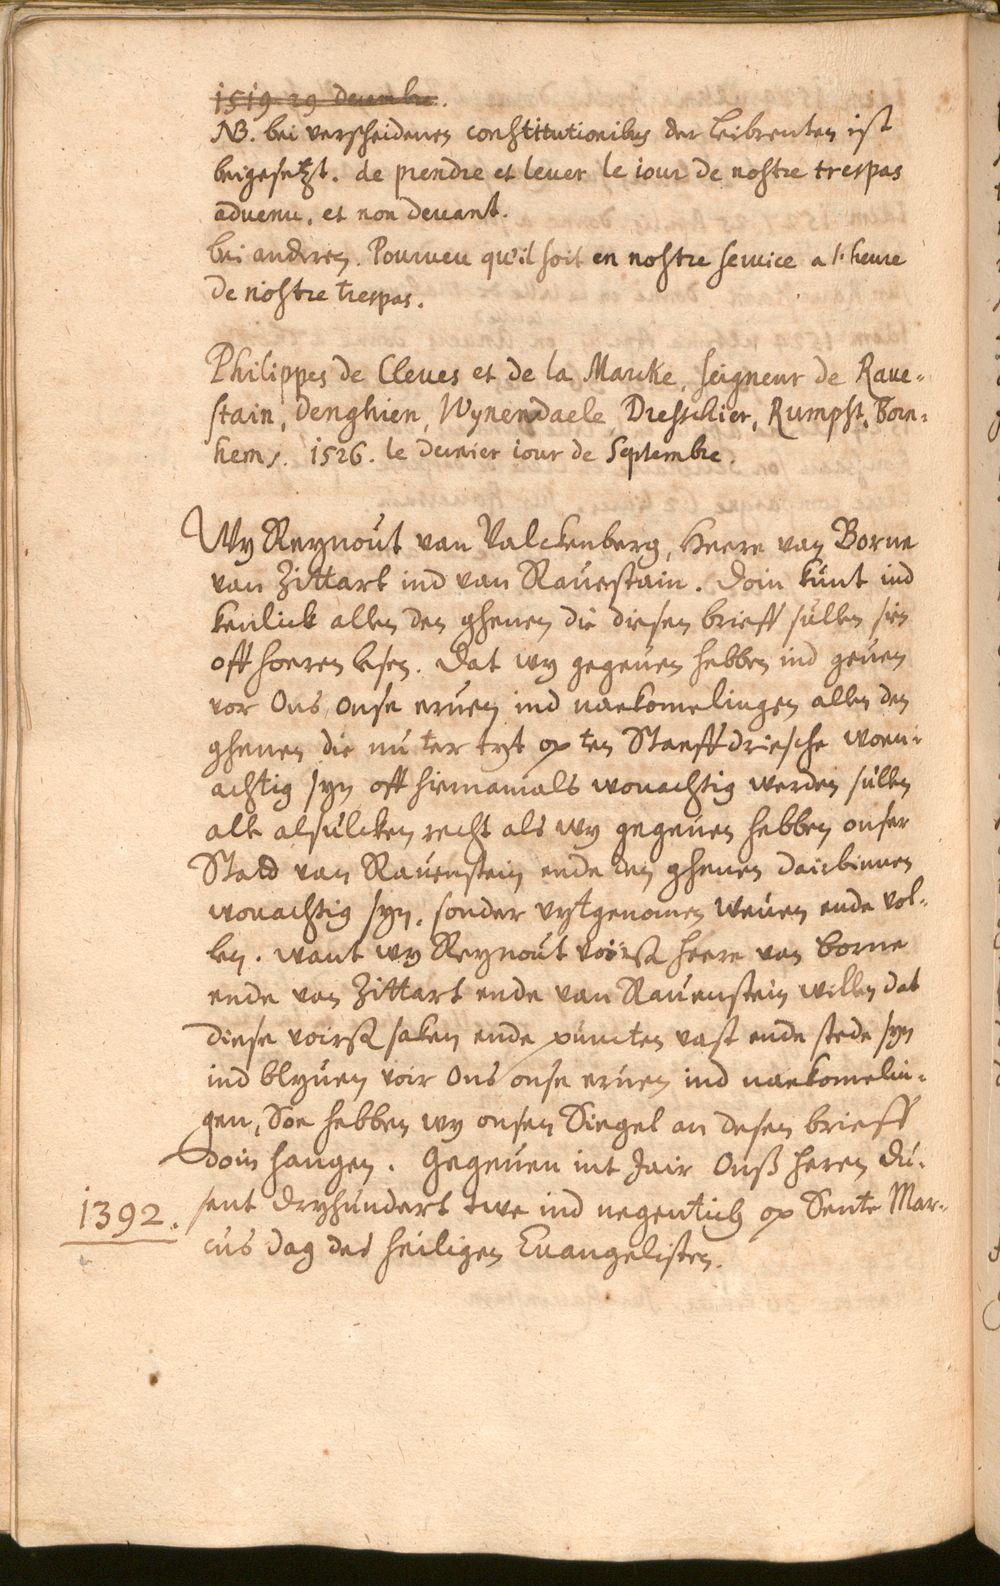 1519. 29 Decembre.
NB. bei verscheidenen constitutionibus der leibrenten ist
beigesetzt. de prendre et lever le iour de nostre trespas
advenu. et non devant.
bei anderen. Pourveu qu'il soit en nostre service a l'heure
de nostre trespas.
Philippes de Cleues et de la Marcke, seigneur de Raue-
stain, Denghien, Wynendaele, Dresschier, Rumpst, Born-
hem. 1526. le dernier iour de Septembre.
Wy Reynout van Valckenberg, Heere van Borne
van Zittart ind van Rauestain. Doin kunt ind
kenlick allen den ghenen die diesen brieff sullen sien
off hoeren lesen. Dat wy gegeuen hebben ind geuen
vor Ons, onse eruen ind naekomelingen allen den
ghenen die nu ter tyt op ten Staeffdriesche woen-
achtig syn off hiernamals wonachtig werden sullen
all alsulcken recht als wy gegeuen hebben onser
Stadt van Rauenstein ende den ghenen dairbinnen
wonachtig syn, sonder uytgenomen weuen ende vol-
len. want wy Reynout voirß heere van borne
ende van Zittart ende van Rauenstein willen dat
diese voirß saken ende puncten vast ende stede syn
ind blyuen voir Ons onse eruen ind naekomelin-
gen, Soe hebben wy onsen Siegel an desen brieff
doin hangen. Gegeuen int Jair Onß heren du-
1392. sent dryhundert twe ind negentich op Sente Mar-
cus dag des heiligen Euangelisten.